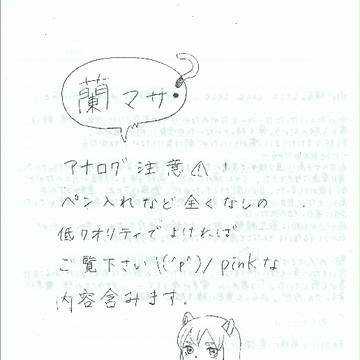 蘭マサ
アナログ注意⚠!
ペン入れなど全くなしの
低クオリティでよければ
ご覧下さい\('p')/pinkな
内容含みます.